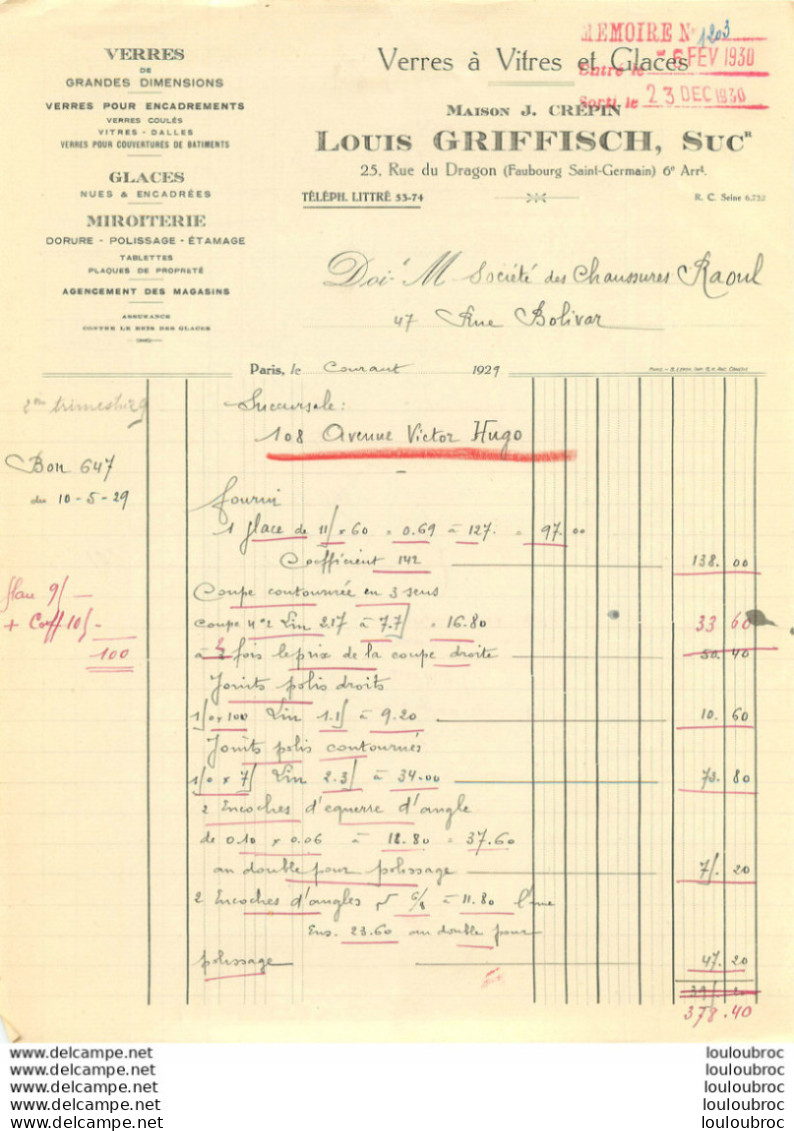 MEMOIRE N° 1203
Entré le 6 FEV 1930
Sorti le 23 DEC 1930
VERRES
DE
GRANDES DIMENSIONS
VERRES POUR ENCADREMENTS
VERRES COULÉS
VITRES - DALLES
VERRES POUR COUVERTURES DE BATIMENTS
GLACES
NUES & ENCADRÉES
MIROITERIE
DORURE - POLISSAGE - ÉTAMAGE
TABLETTES
PLAQUES DE PROPRETÉ
AGENCEMENT DES MAGASINS
ASSURANCE
CONTRE LE BRIS DES GLACES
Verres à Vitres et Glaces
MAISON J. CRÉPIN
LOUIS GRIFFISCH, SUCR
25, Rue du Dragon (Faubourg Saint-Germain) 6e Arrt.
TÉLÉPH. LITTRÉ 53-74
R. C. Seine 6.752
Doit M Société des Chaussures Raoul
47 Rue Bolivar
Paris, le Courant 1929
2me trimestre 29
Succursale:
108 Avenue Victor Hugo
Bon 647
du 10-5-29
fourni
1 glace de 115 x 60 = 0.69 à 127. = 97.00
Coefficient 142 138.00
Coupe contournée en 3 sens
+ Coeff 105
100
coupe n°2 Lin 2.17 à 7.75 = 16.80 33 60
à 2 fois le prix de la coupe droite 50.40
Joints polis droits
150 x 100 Lin 1.15 à 9.20 10.60
Joints polis contournés
Lin 2.35 à 34.00 80
2 Encoches d'equerre d'angle
de 0.10 x 0.06 à 18.80 = 37.60
au double pour polissage 75.20
2 Encoches d'angles 6/8 à 11.80 l'une
Ens. 23.60 au double pour
polissage 47.20
378.40
www.delcampe.net
www.delcampe.net
www.delcampe.net
www.delcampe.net
www.delcampe.net
louloubroc
louloubroc
louloubroc
louloubroc
louloubroc